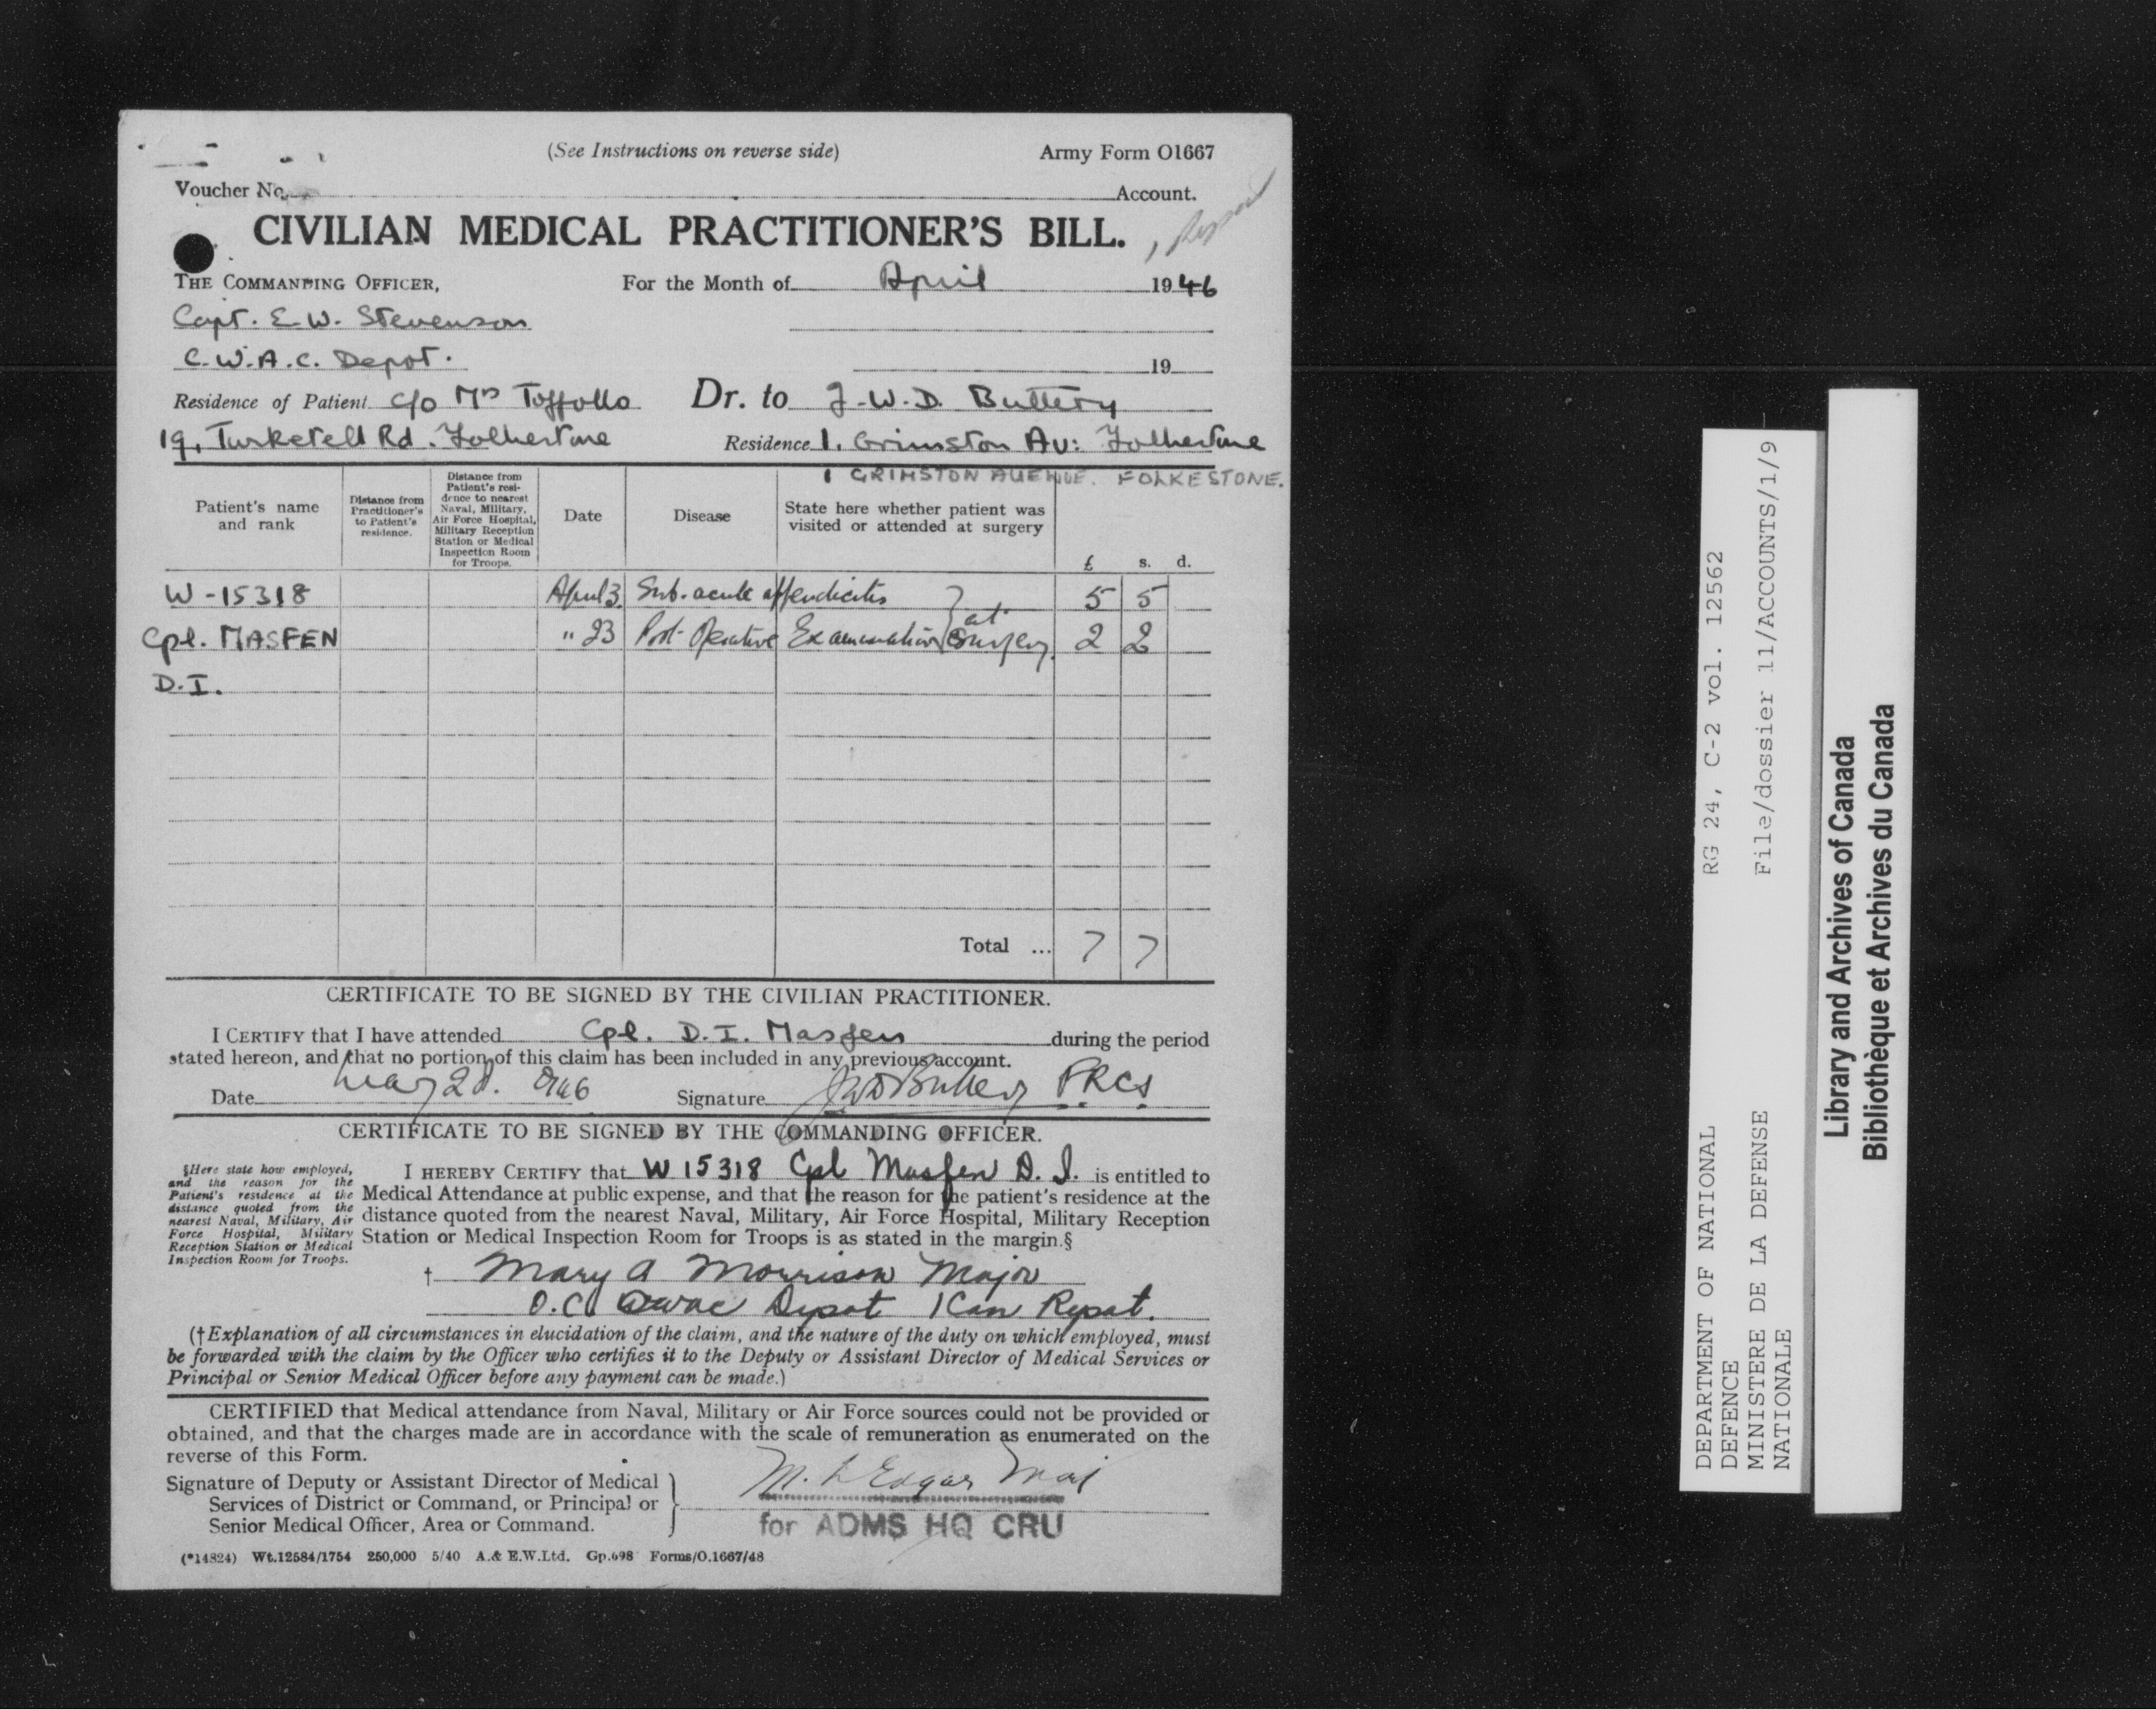 (See Instructions on reverse side) Army Form O1667
Voucher No. Account.
CIVILIAN MEDICAL PRACTITIONER'S BILL.
THE COMMANDING OFFICER, For the Month of April 1946
Capt. E.W. Stevenson
C.W.A.C. Depot. 19
Residence of Patient c/o Mrs Toffolo Dr. to J.W.D. Buttery
19, Turketell Rd. Folkestone Residence 1. Grimston Av: Folkestone
1 GRIMSTON AVENUE. FOLKESTONE.
Patient's name and rank
Distance from Practitioner's to Patient's residence.
Distance from Patient's residence to nearest Naval, Military, Air Force Hospital, Military Reception Station or Medical Inspection Room for Troops.
Date
Disease
State here whether patient was visited or attended at surgery
£ s. d.
W-15318 April 3. Sub-acute appendicitis 5 5
Cpl. MASFEN " 23 Post-Operative Examination at surgery. 2 2
D.I.
Total ... 7 7
CERTIFICATE TO BE SIGNED BY THE CIVILIAN PRACTITIONER.
I CERTIFY that I have attended Cpl. D.I. Masfen during the period
stated hereon, and that no portion of this claim has been included in any previous account.
Date May 28. 1946 Signature JWD Buttery FRCS
CERTIFICATE TO BE SIGNED BY THE COMMANDING OFFICER.
§Here state how employed,
and the reason for the
Patient's residence at the
distance quoted from the
nearest Naval, Military, Air
Force Hospital, Military
Reception Station or Medical
Inspection Room for Troops.
I HEREBY CERTIFY that W 15318 Cpl Masfen D. I. is entitled to
Medical Attendance at public expense, and that the reason for the patient's residence at the
distance quoted from the nearest Naval, Military, Air Force Hospital, Military Reception
Station or Medical Inspection Room for Troops is as stated in the margin.§
† Mary A Morrison Major
O.C. CWAC Depot 1 Can Repat.
(†Explanation of all circumstances in elucidation of the claim, and the nature of the duty on which employed, must
be forwarded with the claim by the Officer who certifies it to the Deputy or Assistant Director of Medical Services or
Principal or Senior Medical Officer before any payment can be made.)
CERTIFIED that Medical attendance from Naval, Military or Air Force sources could not be provided or
obtained, and that the charges made are in accordance with the scale of remuneration as enumerated on the
reverse of this Form.
Signature of Deputy or Assistant Director of Medical
Services of District or Command, or Principal or
Senior Medical Officer, Area or Command.
M. L Edgar Maj
for ADMS HQ CRU
(*14824) Wt.12584/1754 250,000 5/40 A.& E.W.Ltd. Gp.698 Forms/O.1667/48
DEPARTMENT OF NATIONAL DEFENCE RG 24, C-2 vol. 12562
MINISTERE DE LA DEFENSE NATIONALE File/dossier 11/ACCOUNTS/1/9
Library and Archives of Canada
Bibliothèque et Archives du Canada